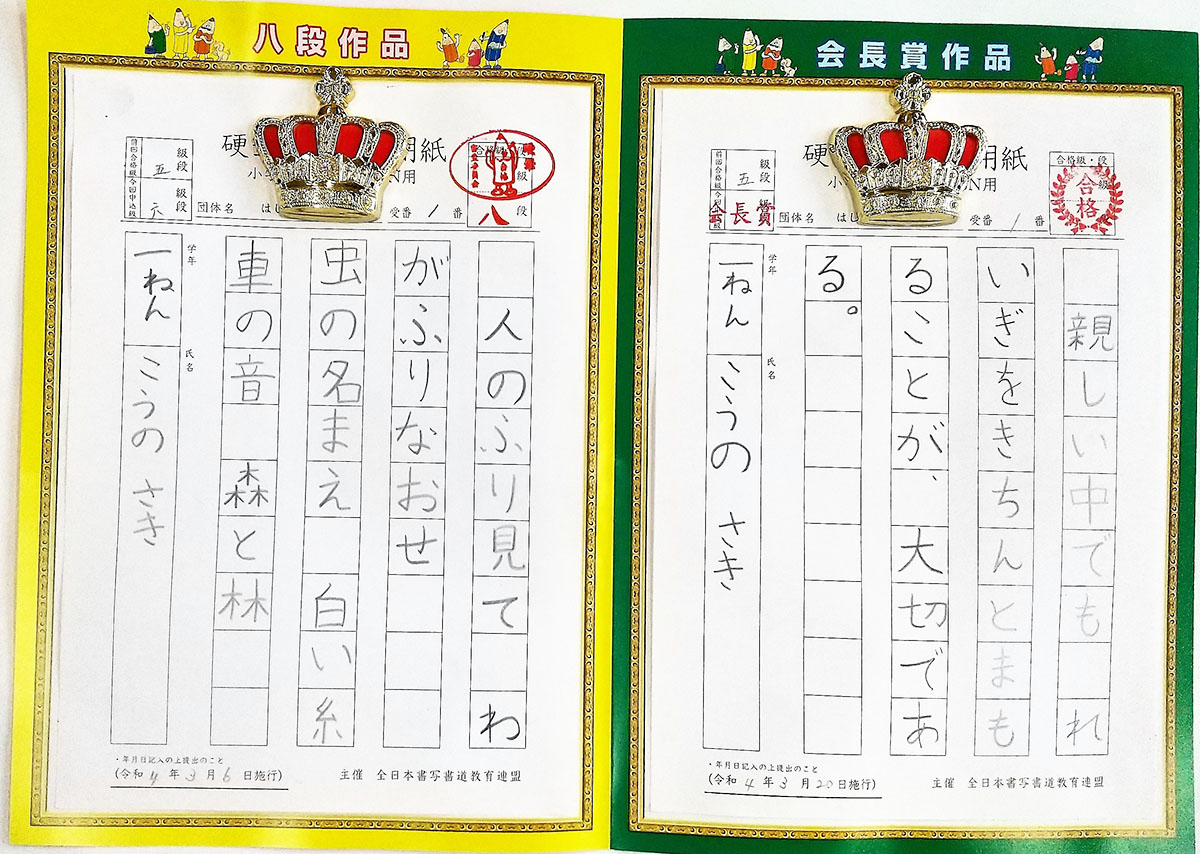 八段作品
硬 用紙
小 N用
前回合格級 五 級段
今回申込級 六 級段
団体名 はし
受番 1 番
合格級・段
級
八 段
人のふり見て わ
がふりなおせ
虫の名まえ 白い糸
車の音 森と林
学年 一ねん
氏名 こうの さき
・年月日記入の上提出のこと
(令和4年3月6日施行)
主催 全日本書写書道教育連盟
会長賞作品
硬 用紙
小 N用
前回合格級 五 級段
会長賞
団体名 はし
受番 1 番
合格級・段
合格
級
親しい中でも れ
いぎをきちんとまも
ることが、大切であ
る。
学年 一ねん
氏名 こうの さき
・年月日記入の上提出のこと
(令和4年3月20日施行)
主催 全日本書写書道教育連盟